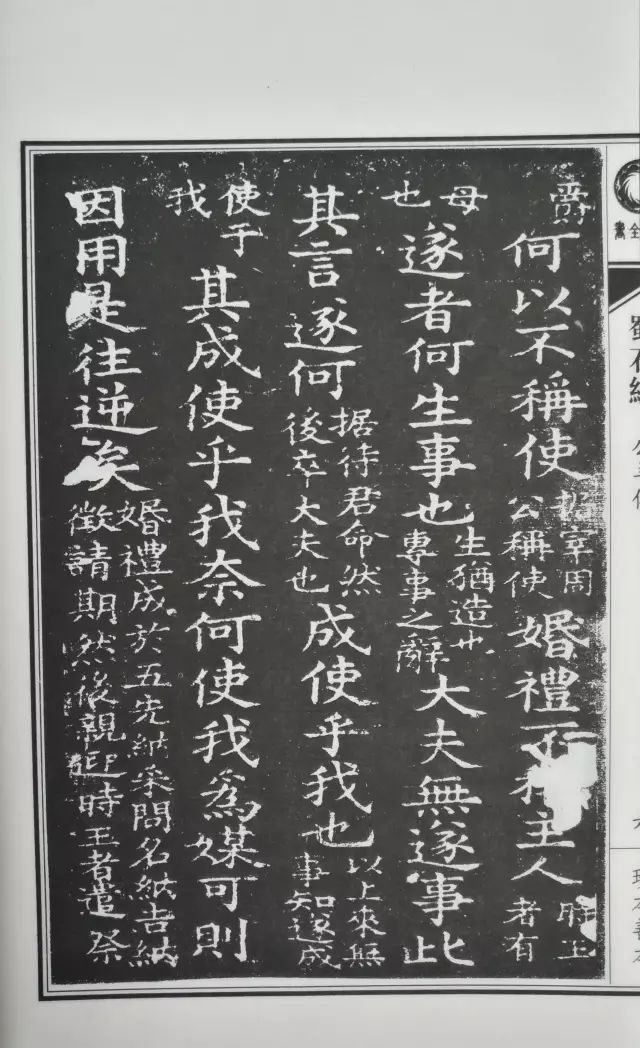 爵何以不稱使宰周公稱使婚禮不主人者有
母也遂者何生事也生猶造也專事之辭大夫無遂事此
其言遂何据待君命然後卒大夫也成使乎我也以上來無事知遂成
使于我其成使乎我柰何使我為媒可則
因用是往逆矣婚禮成於五先納采問名納吉納徵請期然後親迎時王者遣祭